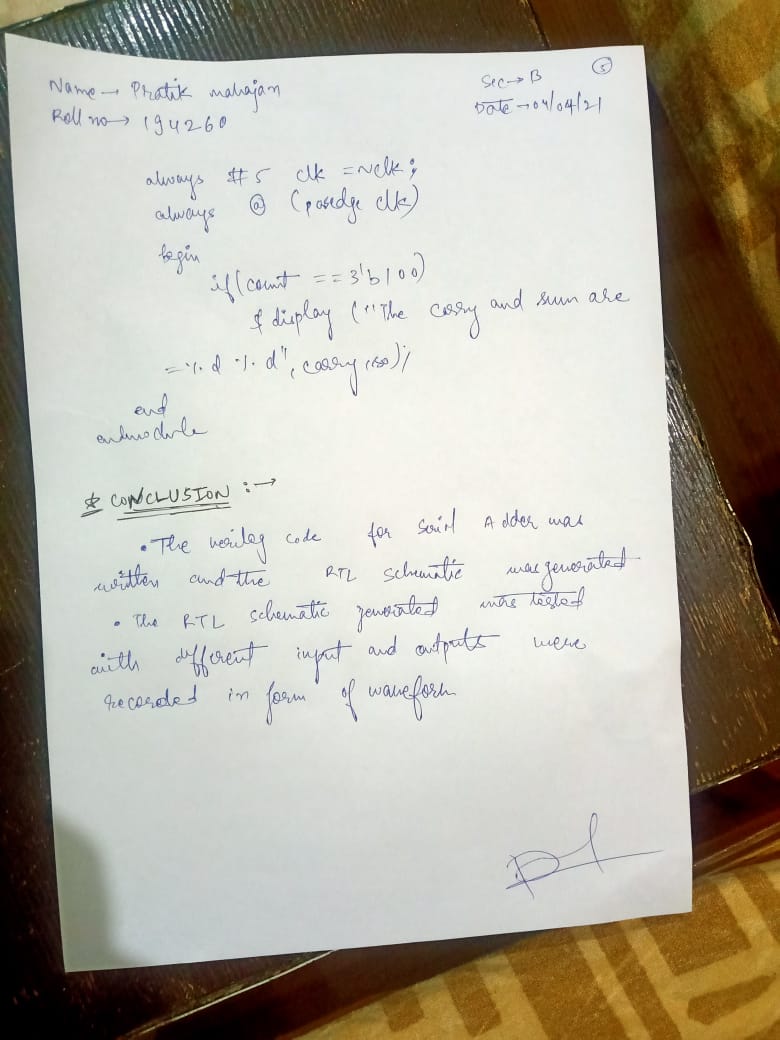 Name → Pratik mahajan
Sec → B
5
Roll no → 194260
Date → 04/04/21
always #5 clk = ~clk;
always @ (posedge clk)
begin
if(count == 3'b100)
$display ("The carry and sum are
= %d %d", carry, so);
end
endmodule
* CONCLUSION :→
• The verilog code for Serial Adder was
written and the RTL schematic was generated
• The RTL schematic generated was tested
with different input and outputs were
recorded in form of waveform